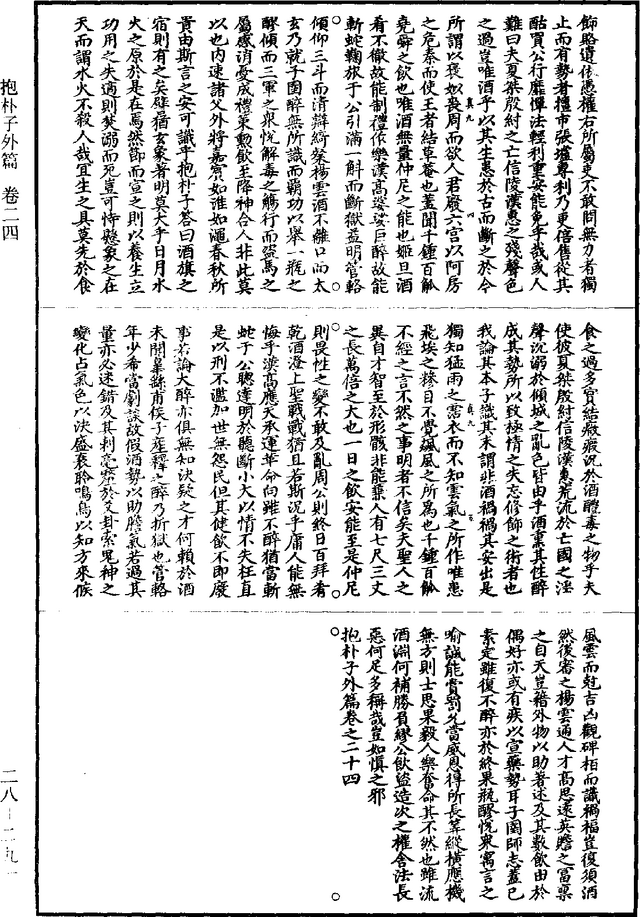 抱朴子外篇 卷二四
二八-二九
飾賂遺依憑權右所屬吏不敢問無力者獨
止而有勢者擅市張壚專利乃更倍售從其
酤買公行靡憚法輕利重安能免乎哉或人
難曰夫夏桀殷紂之亡信陵漢惠之殘聲色
之過豈唯酒乎以其生患於古而斷之於今
所謂以褒姒喪周而欲人君廢六宮以阿房
之危秦而使王者結草菴也蓋聞千鍾百觚
堯舜之飲也唯酒無量仲尼之能也姬旦酒
肴不徹故能制禮作樂漢高婆娑巨醉故能
斬蛇鞠旅于公引滿一斛而斷獄益明管輅
傾仰三斗而清辯綺粲楊雲酒不離口而太
玄乃就子圉醉無所識而霸功以舉一瓶之
醪傾而三軍之衆悅解毒之觴行而盜馬之
屬感消憂成禮策勳飲至降神合人非此莫
以也内速諸父外將嘉賓如淮如澠春秋所
貴由斯言之安可識乎抱朴子答曰酒旗之
宿則有之矣譬猶玄象者明莫大乎日月水
火之原於是在焉然節而宣之則以養生立
功用之失適則焚溺而死豈可恃懸象之在
天而謂水火不殺人哉宜生之具莫先於食
食之過多實結癥瘕況於酒醴毒之物乎夫
使彼夏桀殷紂信陵漢惠荒流於亡國之淫
聲沉溺於傾城之亂色皆由乎酒熏其性醉
成其勢所以致極情之失忘修飾之術者也
我論其本子識其末謂非酒禍禍其安出是
獨知猛雨之霑衣而不知雲氣之所作唯患
飛埃之糝目不覺飆風之所為也千鍾百觚
不經之言不然之事明者不信矣夫聖人之
異自才智至於形骸非能兼人有七尺三丈
之長萬倍之大也一日之飲安能至是仲尼
則畏性之變不敢及亂周公則終日百拜者
乾酒澄上聖戰戰猶且若斯況乎庸人能無
悔乎漢高應天承運革命向雖不醉猶當斬
蛇于公聰達明於聽斷小大以情不失枉直
是以刑不濫加世無怨民但其健飲不即廢
事若論大醉亦俱無知決疑之才何賴於酒
未聞皋繇甫侯子產釋之醉乃折獄也管輅
年少希當劇談故假酒勢以助膽氣若過其
量亦必迷錯及其刺毫釐於爻卦索鬼神之
變化占氣色以決盛衰聆鳴鳥以知方來候
風雲而剋吉凶觀碑柏而識禍福豈復須酒
然後審之楊雲通人才高思遠英贍之富稟
之自天豈藉外物以助著述及其數飲由於
偶好亦或有疾以宣藥勢耳子圉師志蓋已
素定雖復不醉亦於終果瓶醪悅衆寓言之
喻誠能賞罰允當威恩得所長筭縱橫應機
無方則士思果毅人樂奮命其不然也雖流
酒淵何補勝負繆公飲盜造次之權舍法長
惡何足多稱哉豈如慎之邪
抱朴子外篇卷之二十四